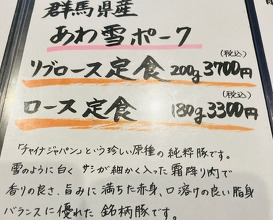 群馬県産
あわ雪ポーク
(税込)
リブロース定食 200g 3700円
(税込)
ロース定食 180g 3300円
「チャイナジャパン」という珍しい原種の純粋豚です。
雪のように白く サシが細かく入った霜降り肉で
香りの良さ、旨みに満ちた赤身、口溶けの良い脂身
バランスに優れた 銘柄豚です。